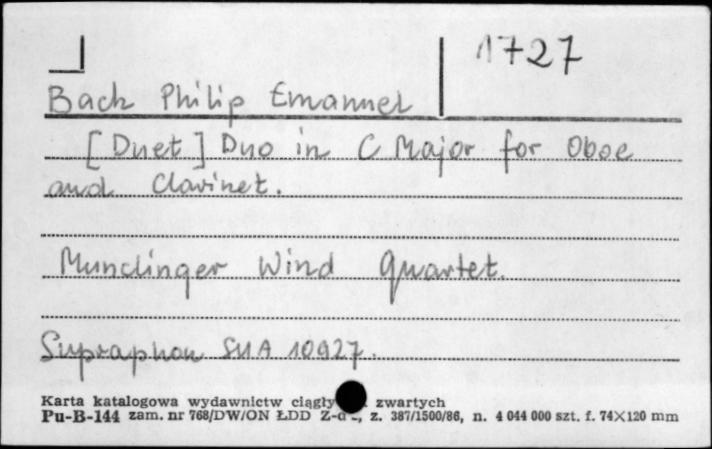 1727
Bach Philip Emanuel
[Duet] Duo in C Major for Oboe
and Clarinet.
Munclinger Wind Quartet.
Supraphon SUA 10927.
Karta katalogowa wydawnictw ciągły zwartych
Pu-B-144 zam. nr 768/DW/ON ŁDD z. 387/1500/86, n. 4 044 000 szt. f. 74×120 mm